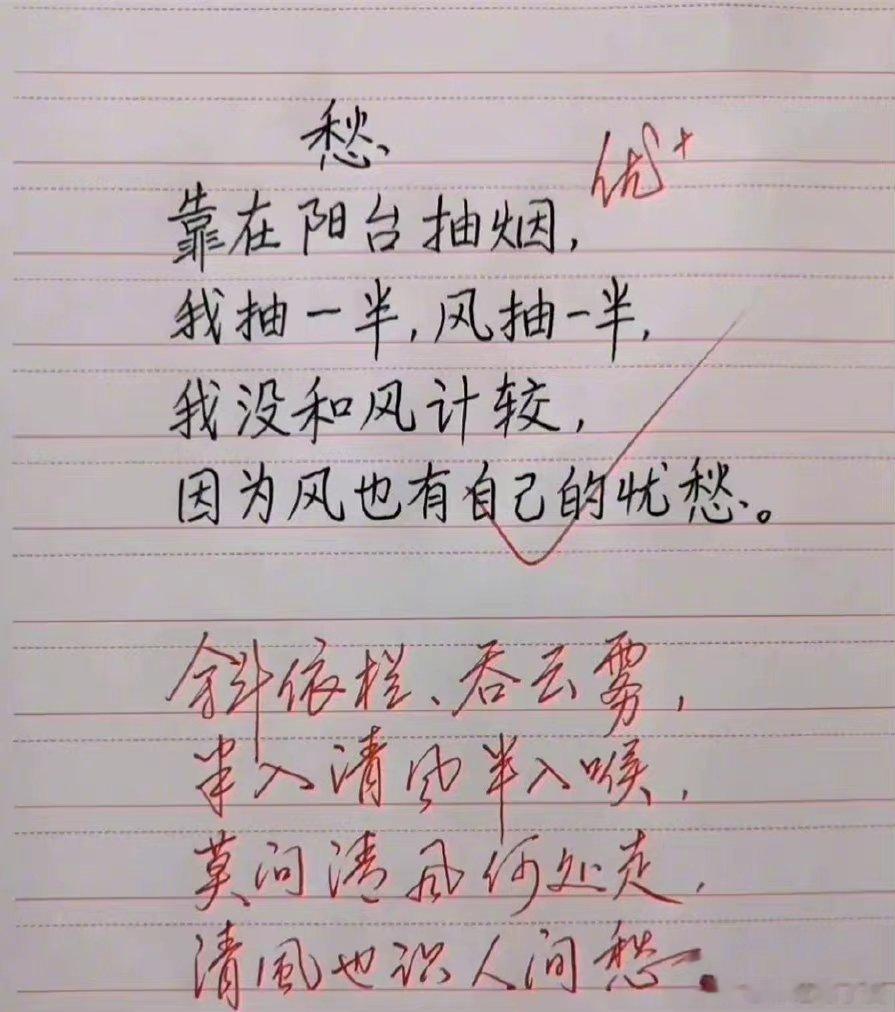 愁
优+
靠在阳台抽烟，
我抽一半，风抽一半，
我没和风计较，
因为风也有自己的忧愁。
斜依栏、吞云雾，
半入清风半入喉，
莫问清风何处走，
清風也识人间愁